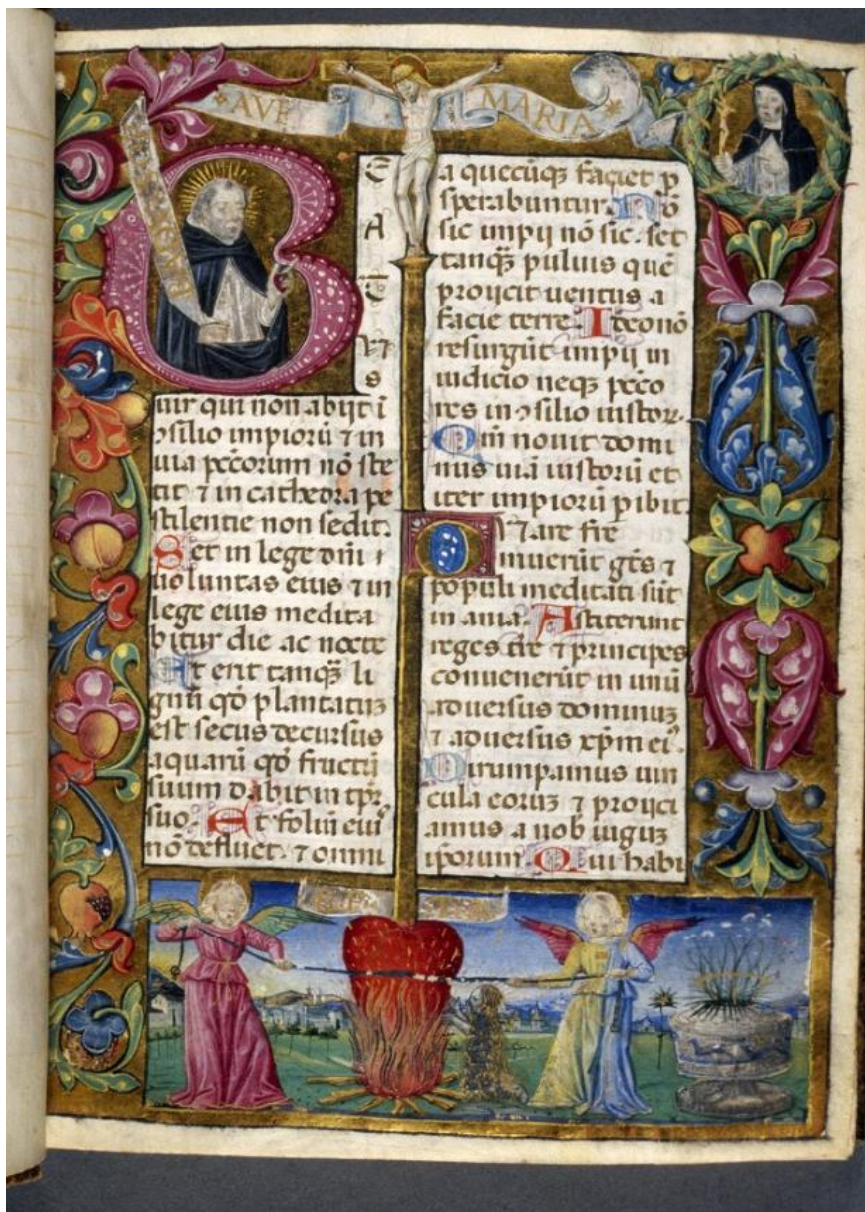 AVE MARIA
B
E
A
T
V
S
uir qui non abijt ĩ
ↄsilio impiorũ ⁊ in
uia pcc̃orum nõ ste
tit ⁊ in cathedra pe
stilentie non sedit.
Set in lege dñi
uoluntas eius ⁊ in
lege eius medita
bitur die ac nocte
Et erit tanqꝫ li
gnũ qđ plantatuꝫ
est secus decursus
aquarũ qđ fructũ
suum dabit in tp̃r
suo. Et foliũ eiuꝰ
nõ defluet. ⁊ omni
a quecũqꝫ faciet ꝓ
sperabuntur. Nõ
sic impij nõ sic. set
tanqꝫ puluis quẽ
proijcit uentus a
facie terre. Ideo nõ
resurgũt impij in
iudicio neqꝫ pcc̃o
res in ↄsilio iustoꝝ.
Qm̃ nouit domi
nus uiã iustorũ et
iter impiorũ ꝑibit.
Qꝛare fre
muerũt gẽs ⁊
populi meditati sũt
in ania. Astiterunt
reges tr̃e ⁊ principes
conuenerũt in unũ
aduersus dominuꝫ
⁊ aduersus xp̃m eiꝰ.
Dirumpamus uin
cula eoruꝫ ⁊ proijci
amus a nob̃ iuguꝫ
ip̃orum Qui habi